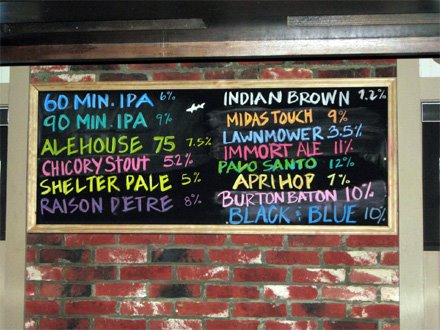 60 MIN. IPA 6%
90 MIN. IPA 9%
ALEHOUSE 75 7.5%
CHICORY STOUT 5.2%
SHELTER PALE 5%
RAISON DETRE 8%
INDIAN BROWN 7.2%
MIDAS TOUCH 9%
LAWNMOWER 3.5%
IMMORT ALE 11%
PALO SANTO 12%
APRIHOP 7%
BURTON BATON 10%
BLACK & BLUE 10%